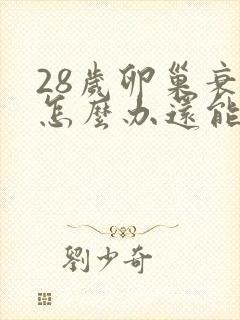 28歲卵巢衰
怎麼办還能
劉少奇